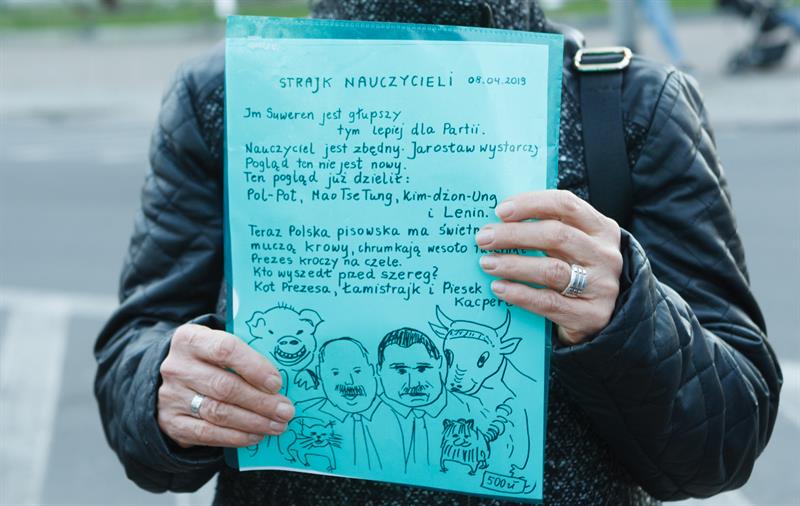 STRAJK NAUCZYCIELI 08.04.2019
Im Suweren jest głupszy
tym lepiej dla Partii.
Nauczyciel jest zbędny. Jarosław wystarczy
Pogląd ten nie jest nowy.
Ten pogląd już dzielił:
Pol-Pot, Mao Tse Tung, Kim-dżon-Ung
i Lenin.
Teraz Polska pisowska ma
muczą krowy, chrumkają wesoło
Prezes kroczy na czele.
Kto wyszedł przed szereg?
Kot Prezesa, Łamistrajk i Piesek
500 zł